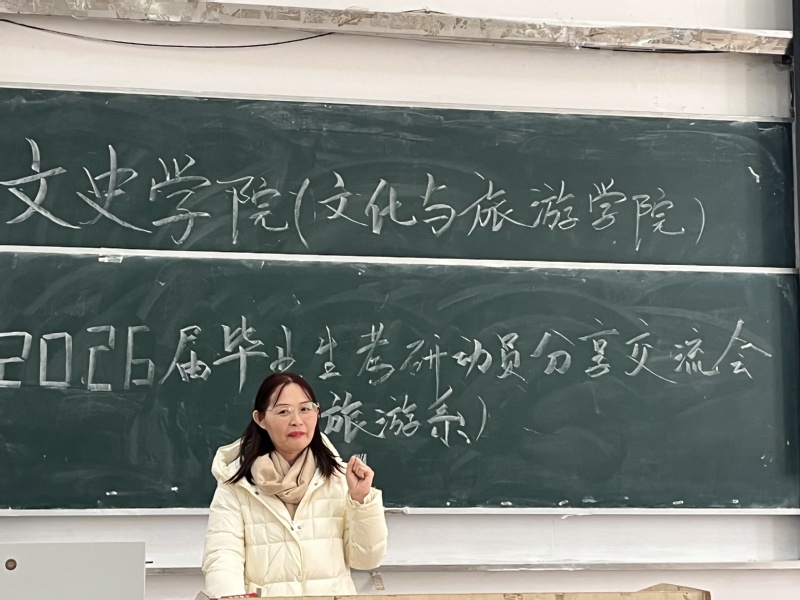 文史学院(文化与旅游学院)
2026届毕业生考研动员分享交流会
旅游系)